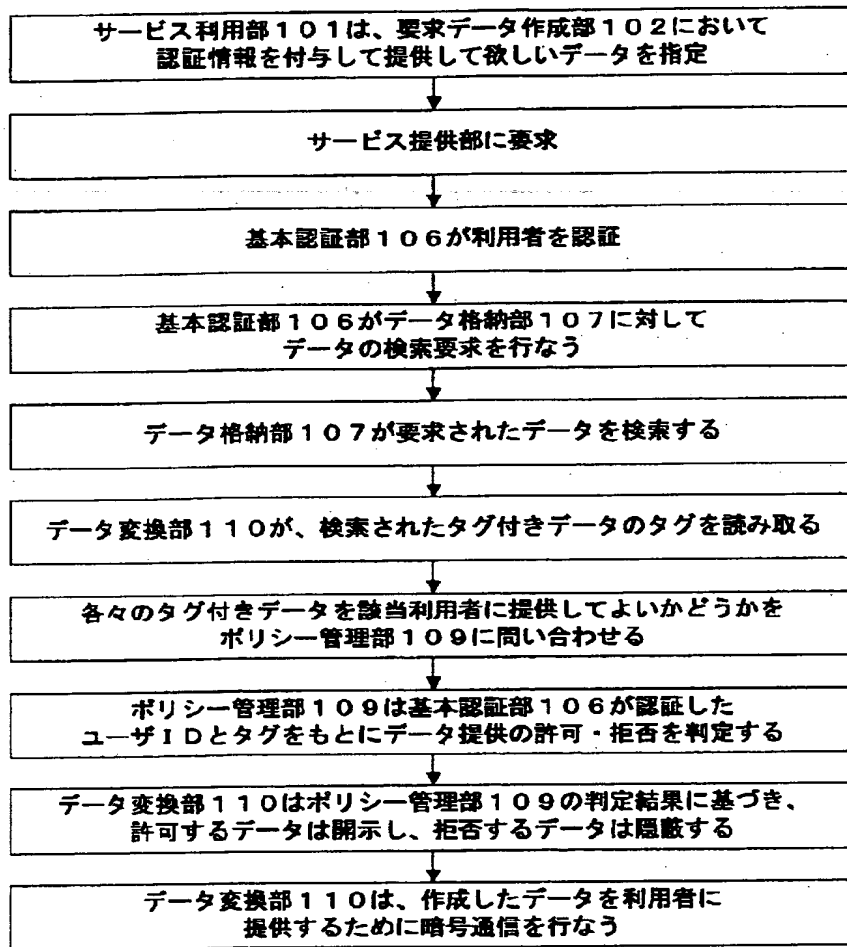 サービス利用部１０１は、要求データ作成部１０２において
認証情報を付与して提供して欲しいデータを指定
サービス提供部に要求
基本認証部１０６が利用者を認証
基本認証部１０６がデータ格納部１０７に対して
データの検索要求を行なう
データ格納部１０７が要求されたデータを検索する
データ変換部１１０が、検索されたタグ付きデータのタグを読み取る
各々のタグ付きデータを該当利用者に提供してよいかどうかを
ポリシー管理部１０９に問い合わせる
ポリシー管理部１０９は基本認証部１０６が認証した
ユーザＩＤとタグをもとにデータ提供の許可・拒否を判定する
データ変換部１１０はポリシー管理部１０９の判定結果に基づき、
許可するデータは開示し、拒否するデータは隠蔽する
データ変換部１１０は、作成したデータを利用者に
提供するために暗号通信を行なう